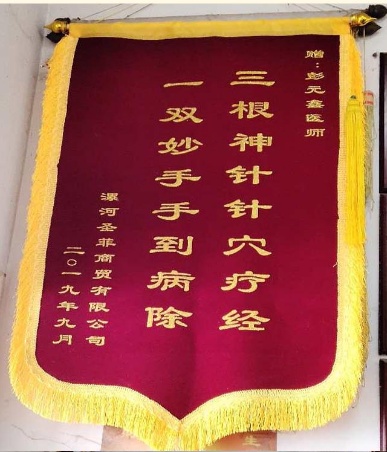 赠：彭元鑫医师
三根神针针穴疗经
一双妙手手到病除
漯河圣菲商贸有限公司
二〇一九年九月
生